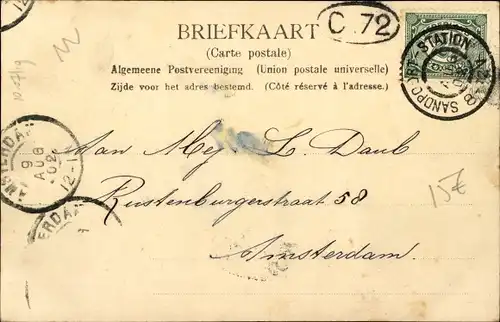 BRIEFKAART
(Carte postale)
Algemeene Postvereeniging (Union postale universelle)
Zijde voor het adres bestemd. (Côté réservé à l'adresse.)
C. 72
SANDPOORT-STATION
AMSTERDAM
9
AUG
02
12-1
ERDA
Aan Mej. L. Daub
Rustenburgerstraat 58
Amsterdam.
15€